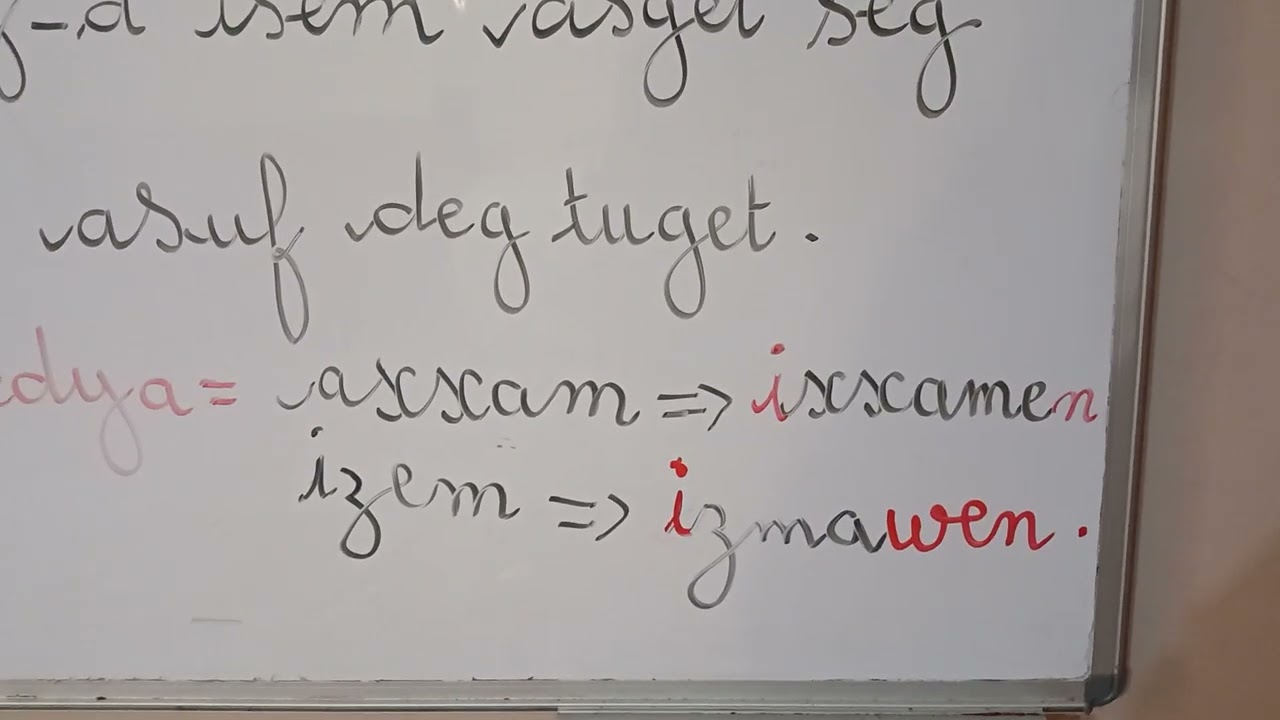 -d isem asget seg
asuf deg tuget.
edya = axxam => ixxamen
izem => izmawen.